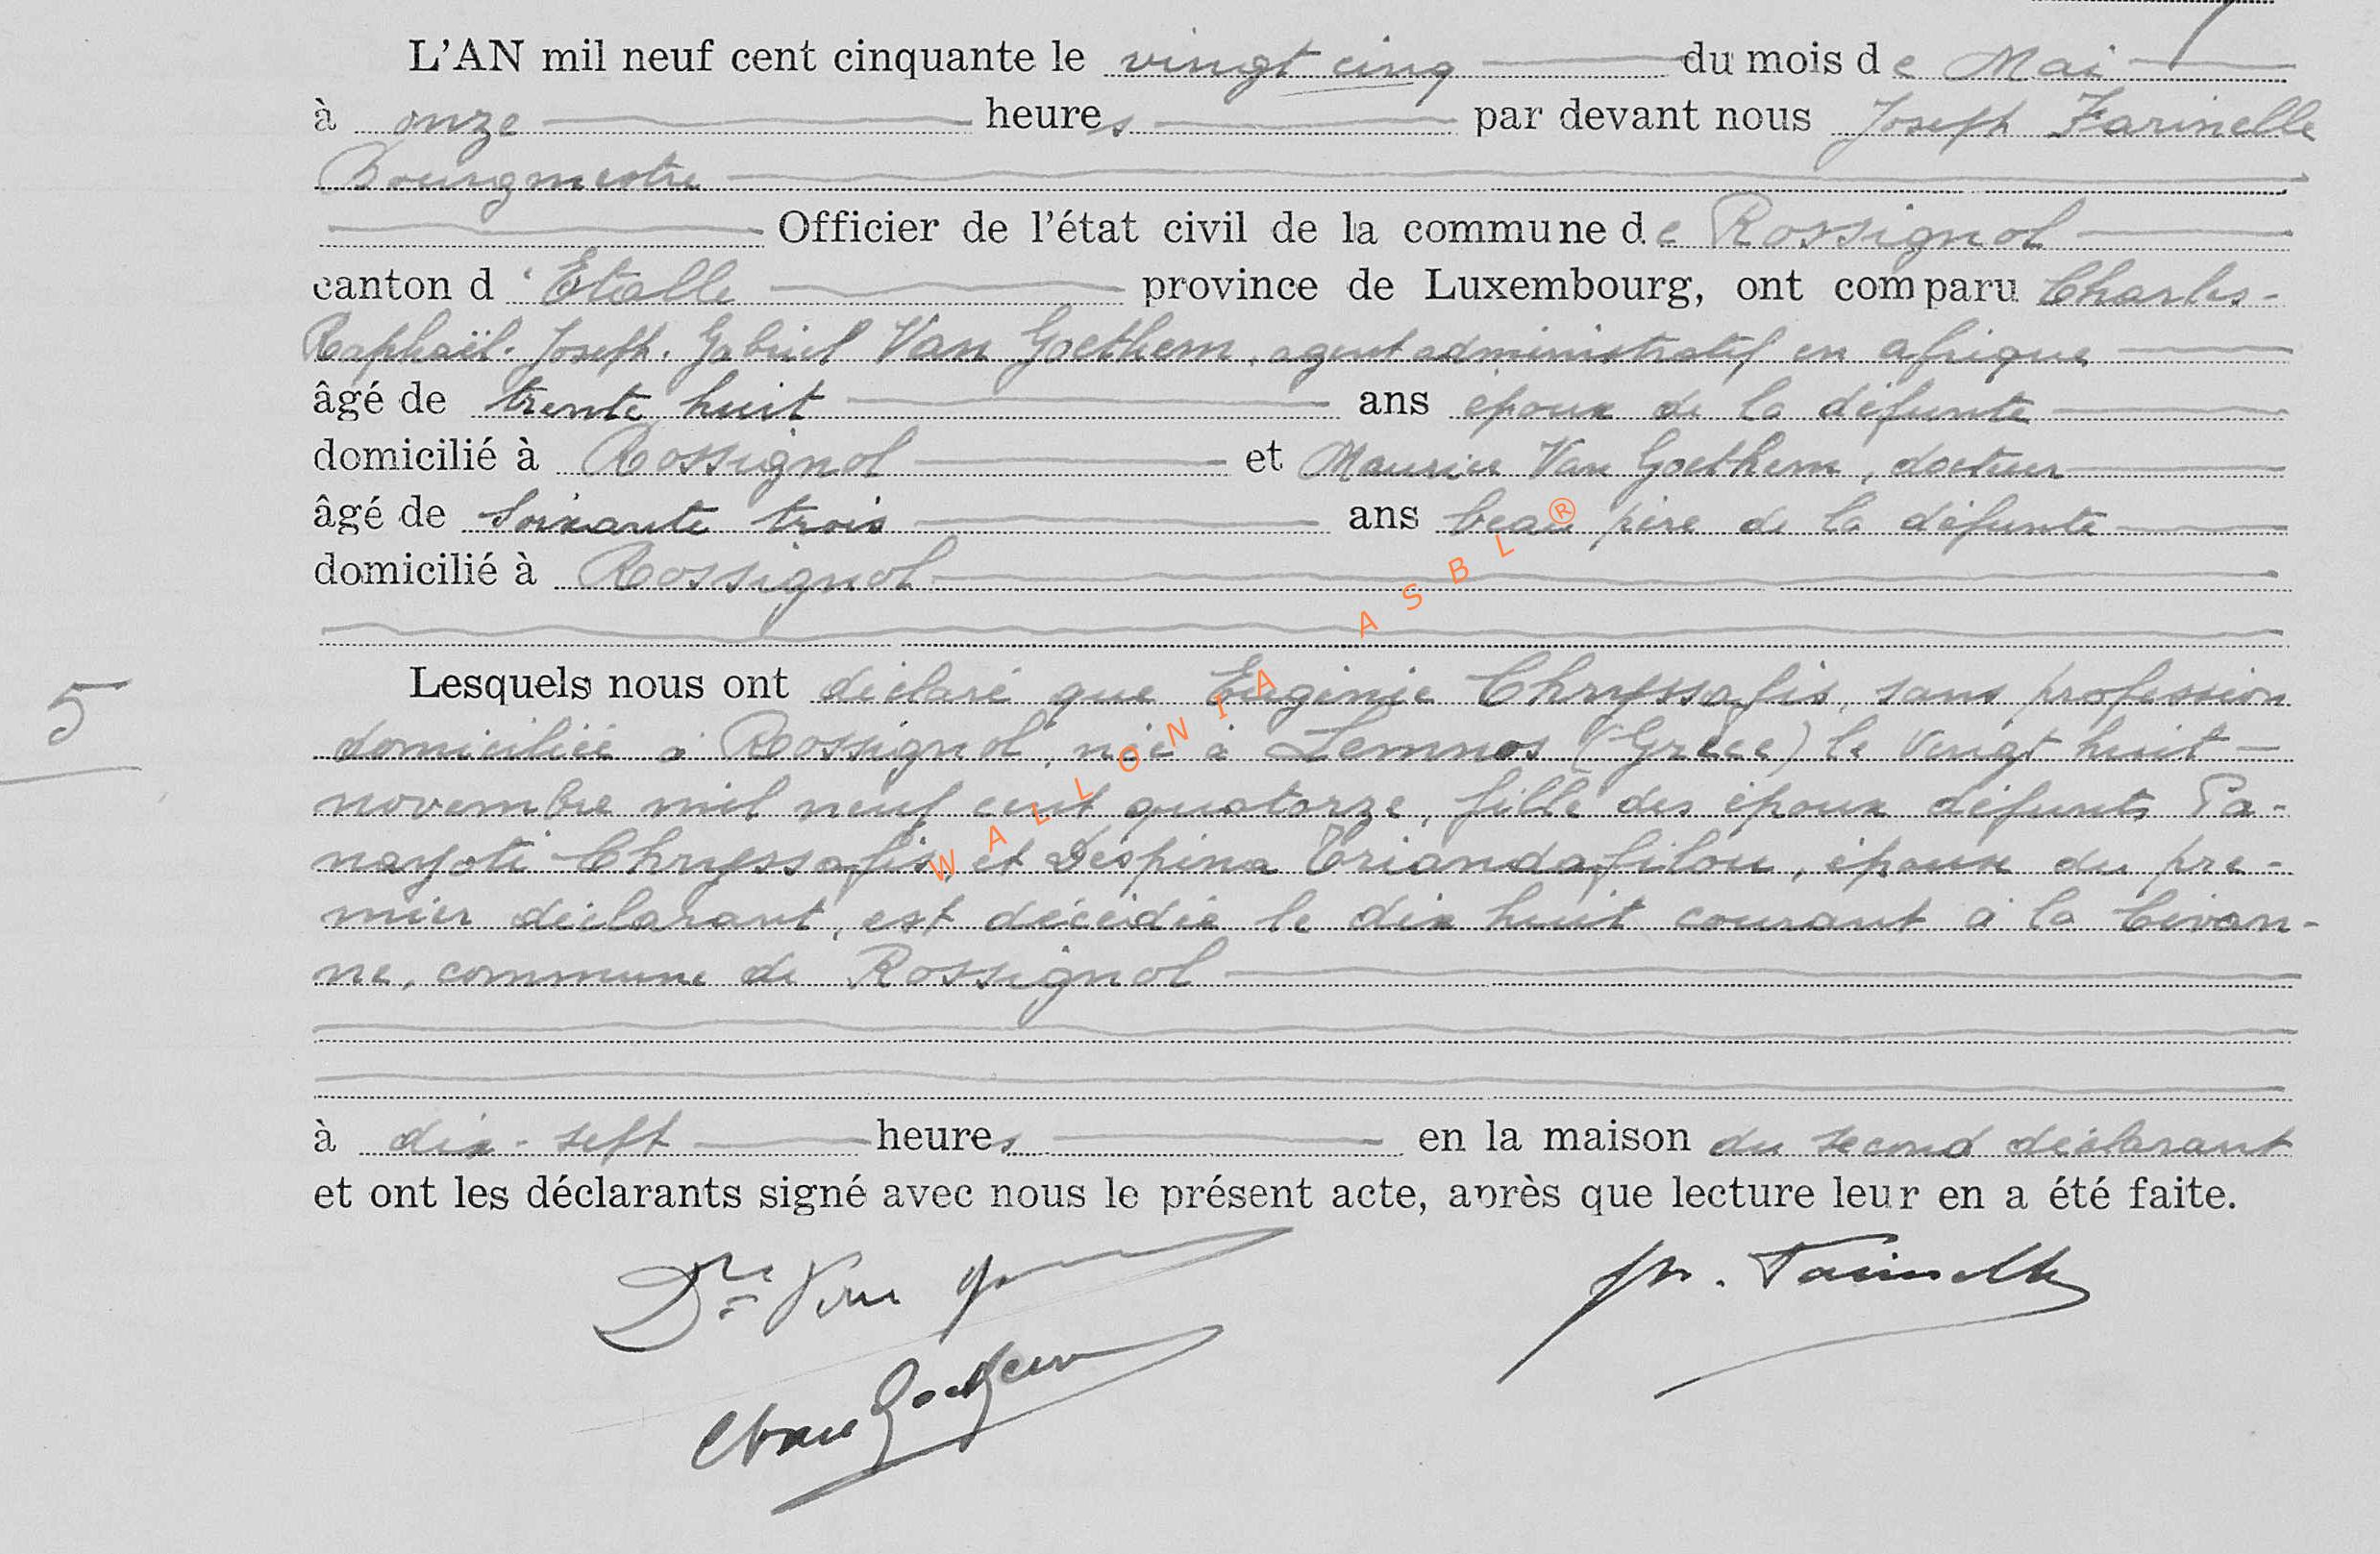 L'AN mil neuf cent cinquante le vingt cinq du mois de Mai
à onze heures par devant nous Joseph Farinelle
Bourgmestre
Officier de l'état civil de la commune de Rossignol
canton d'Etalle province de Luxembourg, ont comparu Charles-
Raphaël-Joseph-Gabriel Van Goethem, agent administratif en afrique
âgé de trente huit ans époux de la défunte
domicilié à Rossignol et Maurice Van Goethem, docteur
âgé de soixante trois ans beau père de la défunte
domicilié à Rossignol
Lesquels nous ont déclaré que Eugénie Chryssafis, sans profession
5
domiciliée à Rossignol, née à Lemnos (Grèce) le vingt huit
novembre mil neuf cent quatorze, fille des époux défunts Pa-
nayoti Chryssafis et Déspina Triandafilou, épouse du pre-
mier déclarant, est décédée le dix huit courant à la Civan-
ne, commune de Rossignol
à dix-sept heures en la maison du second déclarant
et ont les déclarants signé avec nous le présent acte, après que lecture leur en a été faite.
Dr Van
J. Farinelle
Goethem
WALLONIA ASBL ®